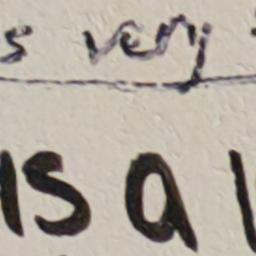 s very
is a